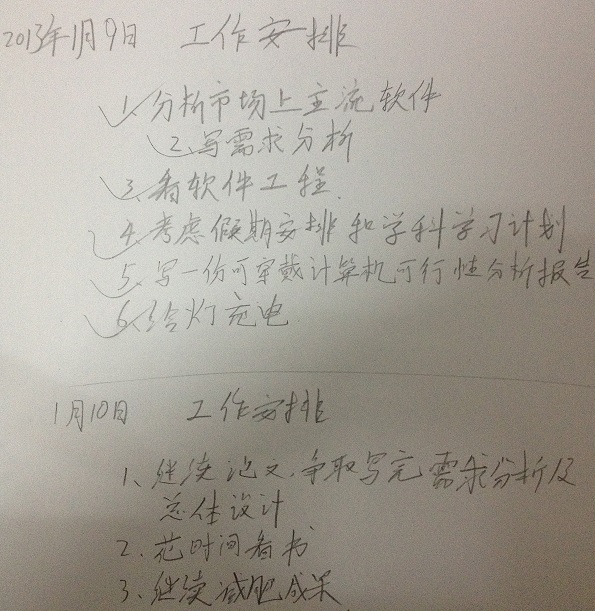 2013年1月9日 工作安排
1、分析市场上主流软件
2、写需求分析
3、看软件工程
4、考虑假期安排和学科学习计划
5、写一份可穿戴计算机可行性分析报告
6、给灯充电
1月10日 工作安排
1、继续论文，争取写完需求分析及
总体设计
2、花时间看书
3、继续减肥成果